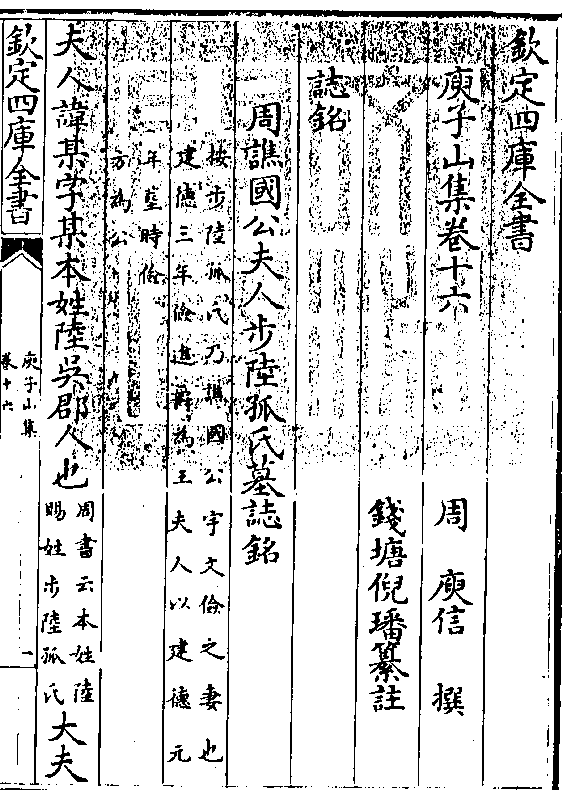 欽定四庫全書
庾子山集卷十六
周　庾信　撰
錢塘倪璠纂註
誌銘
周譙國公夫人步陸孤氏墓誌銘
按步陸孤氏乃譙國公宇文儉之妻也
建德三年儉進爵為王夫人以建德元
年薨時儉
方為公
夫人諱某字某本姓陸吳郡人也
周書云本姓陸
賜姓步陸孤氏
大夫
欽定四庫全書
庾子山集
卷十六
一